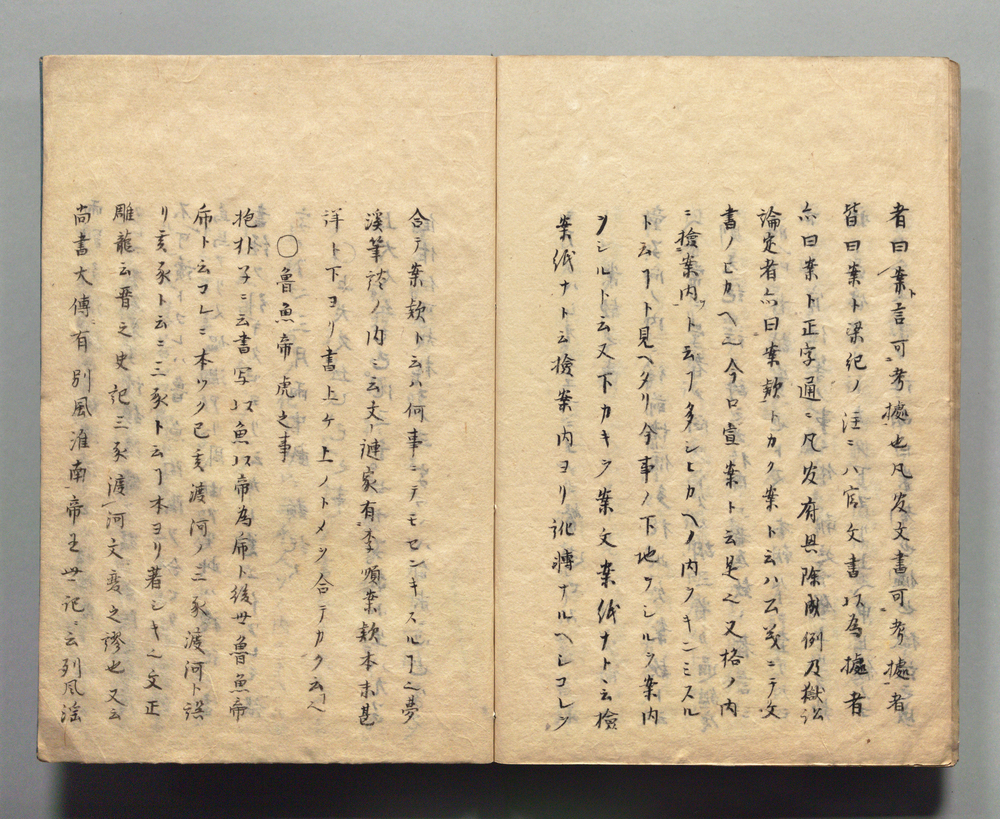 者曰案ト言可考據也凡官文書可考據者
皆曰案下梁紀ノ注ニハ官文書以為據者
亦曰案ト正字通ニ凡官府興除成例及獄訟
論定者亦曰案款トカク案ト云ハ公義ニテ文
書ノヒカヘ也今口宣案ト云是也又格ノ内
ニ撿案内ット云フ多シヒカヘノ内ヲキンミスル
ト云フト見ヘタリ今事ノ下地ヲシルヲ案内
ヲシルト云又下カキヲ案文案紙ナト云撿
案紙ナト云撿案内ヨリ訛轉ナルヘシコレヲ
合テ案款ト云ハ何事ニテモセンキスルフ也夢
溪筆談ノ内ニ云文潞家有李順案款本末甚
詳ト下ヨリ書上ケ上ノトメヲ合テカク云フヘ
〇魯魚帝虎之事
抱朴子ニ云書写以魚以帝為乕ト後世魯魚帝
乕ト云コレニ本ツク已亥渡河ノ二豕渡河ト誤
リ亥豕ト云ニ三豕ト云フ本ヨリ著シキ也文正
雕龍云晋之史記三豕渡河文変之謬也又云
尚書大傳有別風淮南帝王世記云列風淫